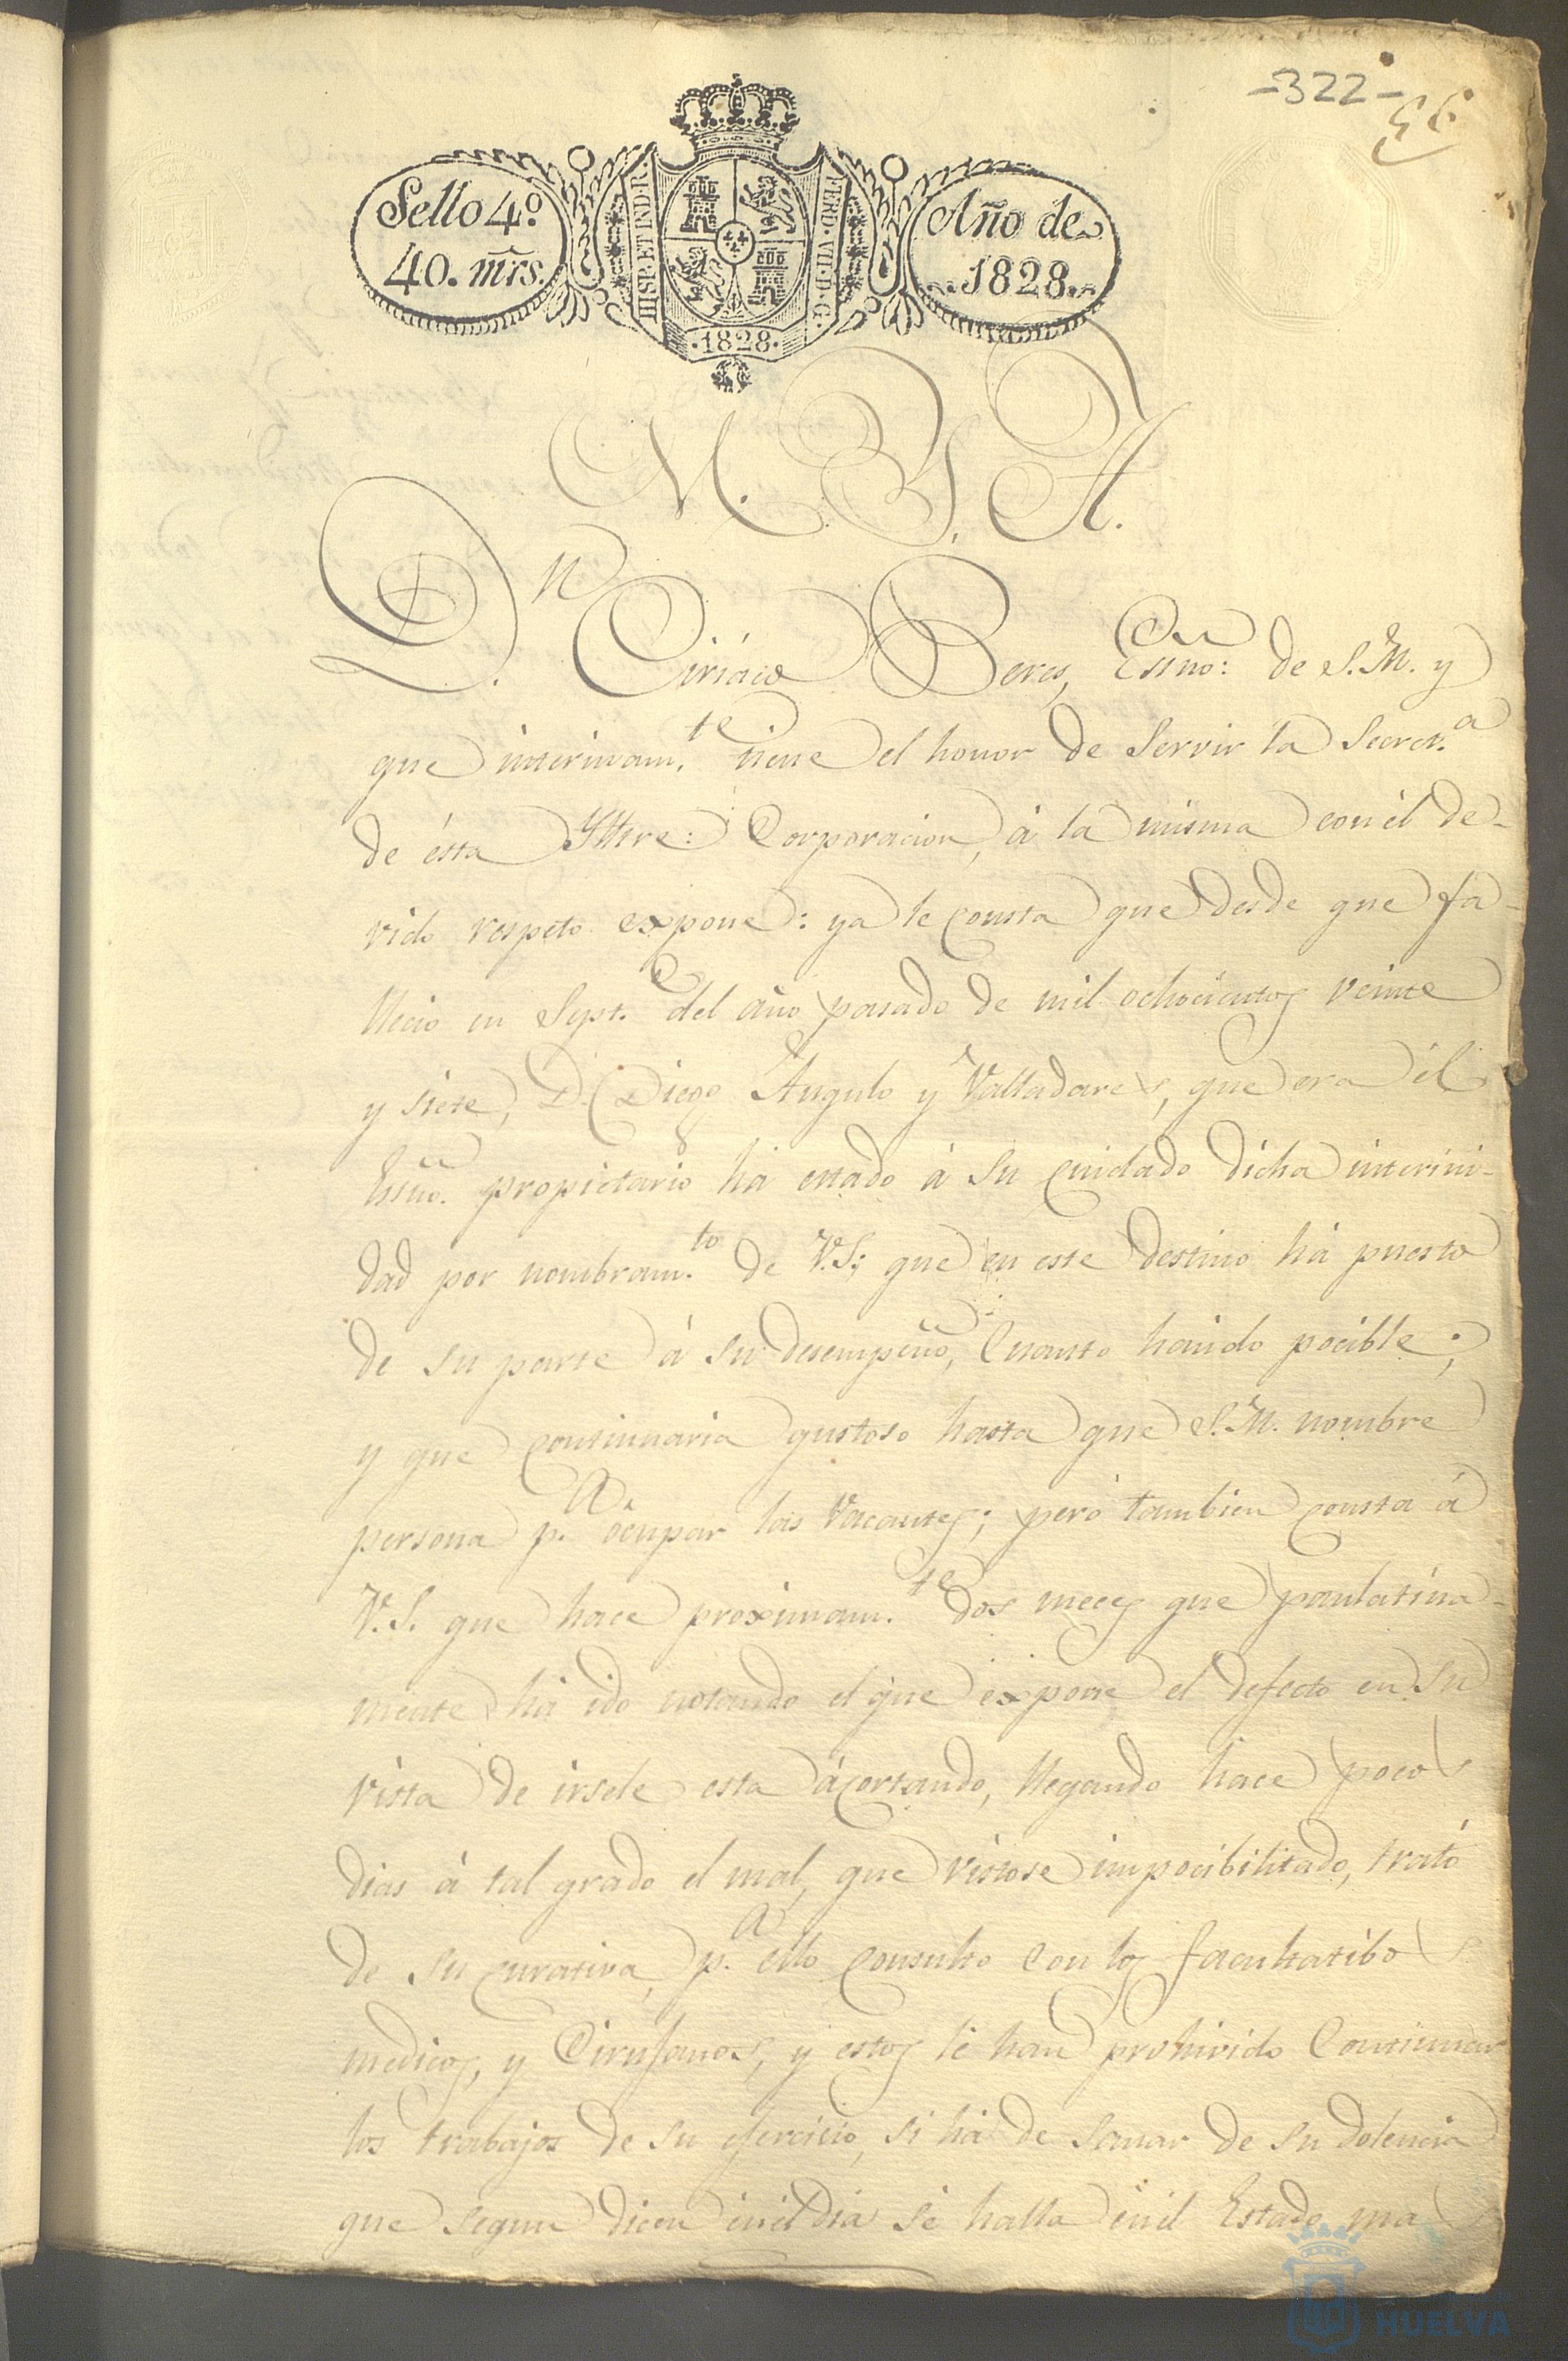 -322-
Sello 4º
40. mrs.
HISP. ET IND. R.
FERD. VII. D. G.
·1828·
Año de
1828.
M. Y. A.
D.n Ciriáco Beres, Essno: de S. M. y
que interinam.te tiene el honor de servir la Secret.a
de ésta Yltre: Corporacion, á la misma con él de-
vido respeto expone: ya le consta que desde que fa-
llecio en Sept.e del año pasado de mil ochocientos veinte
y siete, D. Diego Angulo y Valladares, que era él
Essno. propietario há estado á su cuidado dicha interini-
dad por nombram.to de V.S; que en este destino há puesto
de su parte á su desempeño, cuanto haido pocible;
y que continuaria gustoso hasta que S. M. nombre
persona p.a ócupar las vacantes; pero tambien consta á
V. S. que hace proximam.te dos meces que paulatina-
mente há ido notando el que éxpone el defecto en su
vista de irsele esta ácortando, llegando hace pocos
dias á tal grado el mal, que vistose impocibilitado, trató
de su curativa, p.a ello consulto con los facultatibos
medicos, y Cirujanos, y estos le han prohivido continuar
los trabajos de su ejercicio, si há de sanar de su dolencia
que segun dicen énél dia se halla énél Estado mas
HUELVA